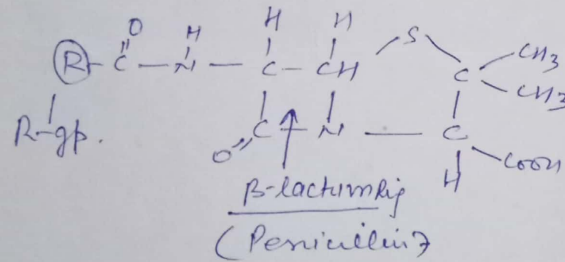 O H H H
R - C - N - C - CH S C CH3
CH3
R-gp. O C - N - C COOH
H
β-lactum Rig
(Penicillin)